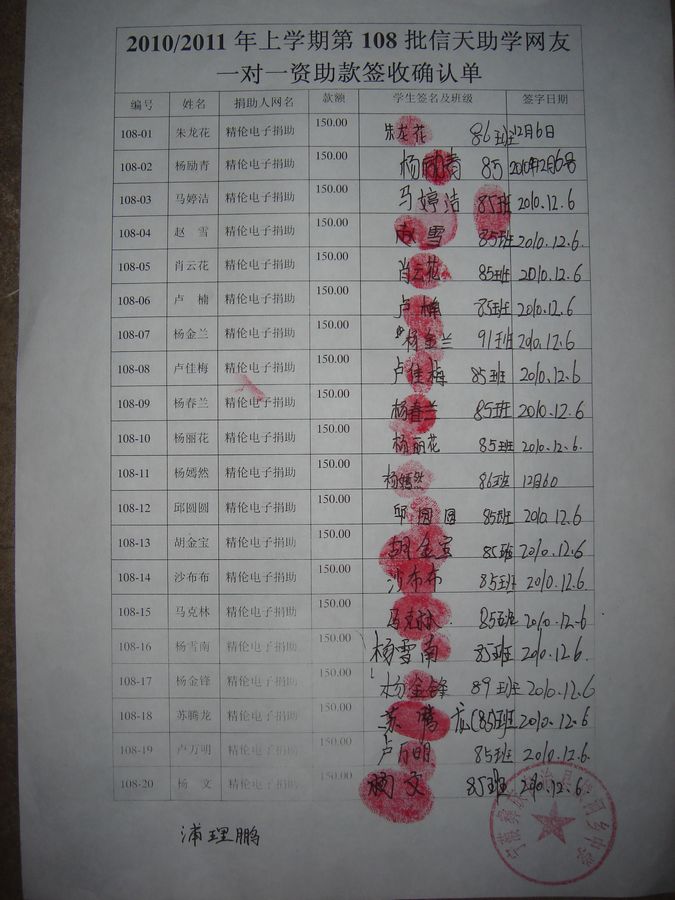 2010/2011 年上学期第 108 批信天助学网友
一对一资助款签收确认单
编号 姓名 捐助人网名 款额 学生签名及班级 签字日期
108-01 朱龙花 精伦电子捐助 150.00 朱龙花 86班 12月6日
108-02 杨励青 精伦电子捐助 150.00 杨励青 85 2010年12月6号
108-03 马婷洁 精伦电子捐助 150.00 马婷洁 85班 2010.12.6
108-04 赵 雪 精伦电子捐助 150.00 赵雪 85班 2010.12.6.
108-05 肖云花 精伦电子捐助 150.00 肖云花 85班 2010.12.6
108-06 卢 楠 精伦电子捐助 150.00 卢楠 85班 2010.12.6
108-07 杨金兰 精伦电子捐助 150.00 杨金兰 91班 2010.12.6
108-08 卢佳梅 精伦电子捐助 150.00 卢佳梅 85班 2010.12.6
108-09 杨春兰 精伦电子捐助 150.00 杨春兰 85班 2010.12.6
108-10 杨丽花 精伦电子捐助 150.00 杨丽花 85班 2010.12.6.
108-11 杨嫣然 精伦电子捐助 150.00 杨嫣然 86班 12月6日
108-12 邱圆圆 精伦电子捐助 150.00 邱圆圆 85班 2010.12.6
108-13 胡金宝 精伦电子捐助 150.00 胡金宝 85班 2010.12.6
108-14 沙布布 精伦电子捐助 150.00 沙布布 85班 2010.12.6.
108-15 马克林 精伦电子捐助 150.00 马克林 85班 2010.12.6.
108-16 杨雪南 精伦电子捐助 150.00 杨雪南 85班 2010.12.6.
108-17 杨金锋 精伦电子捐助 150.00 杨金锋 89班 2010.12.6
108-18 苏腾龙 精伦电子捐助 150.00 苏腾龙(85)班 2010.12.6
108-19 卢万明 精伦电子捐助 150.00 卢万明 85班 2010.12.6.
108-20 杨 文 精伦电子捐助 150.00 杨文 85班 2010.12.6.
浦理鹏